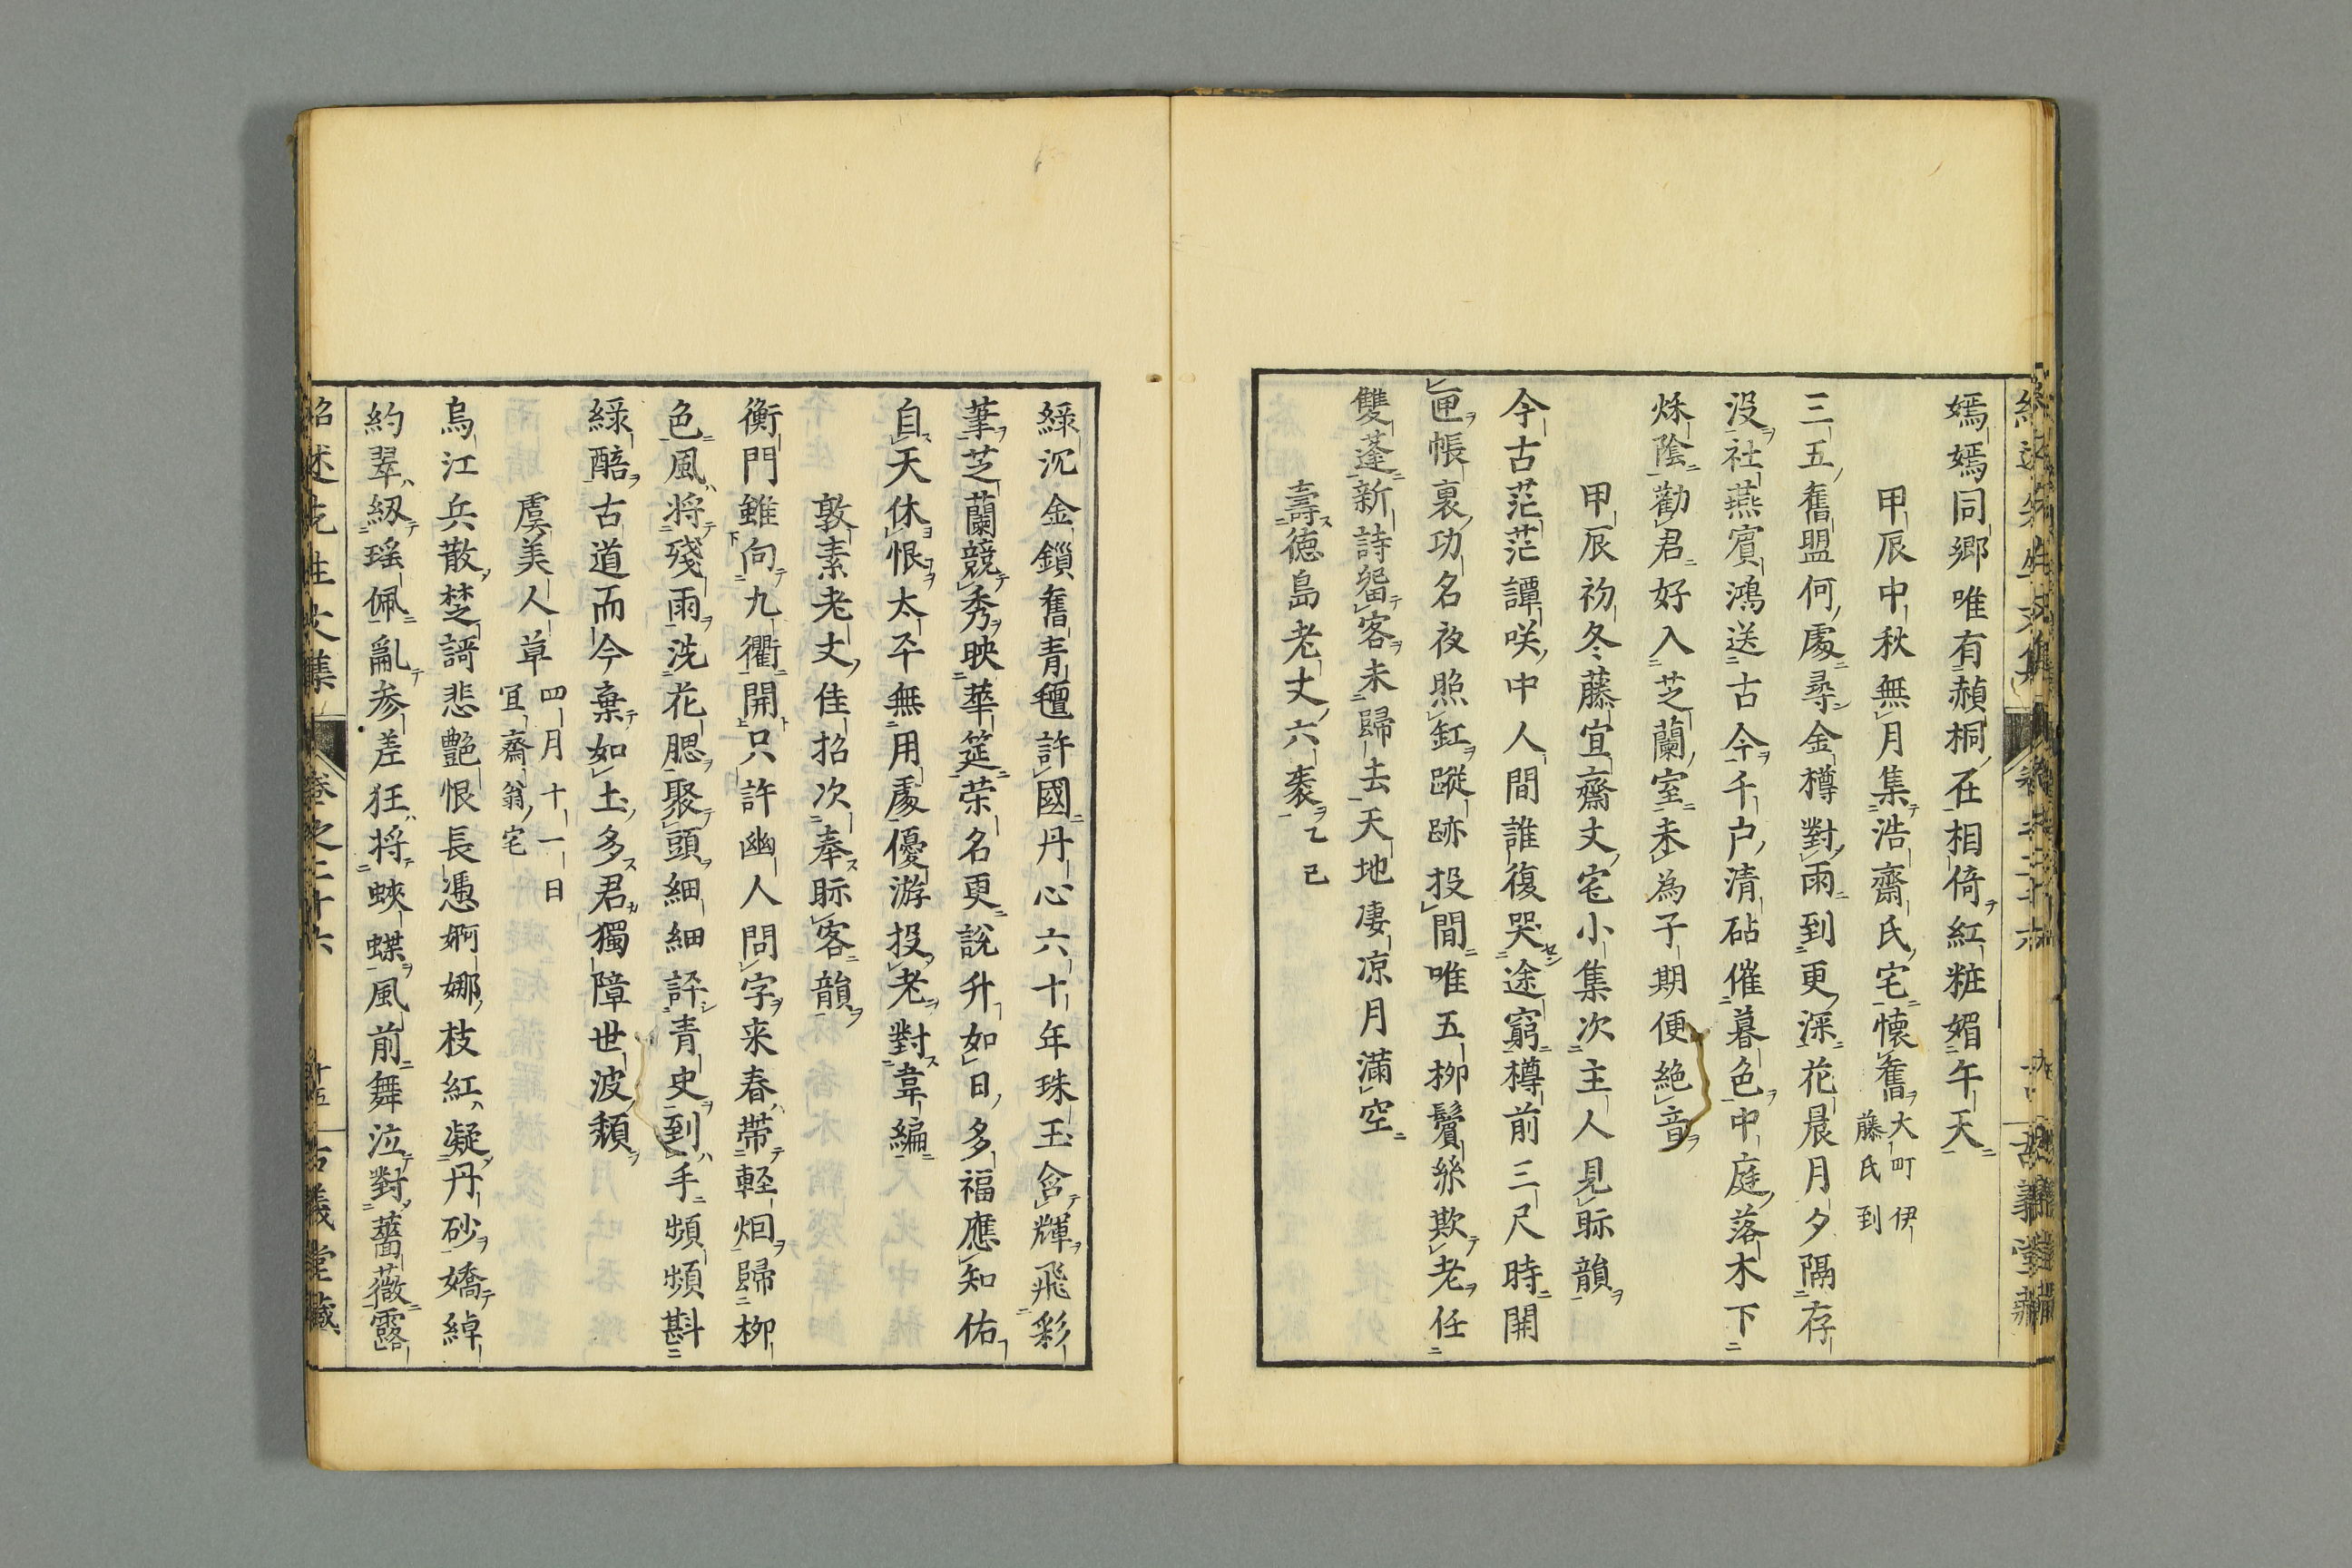 嫣嫣同郷唯有赬桐在相倚紅粧媚午天
甲辰中秋無月集浩齋氏宅懐舊大町伊藤氏到
三五舊盟何處尋金樽對雨到更深花晨月夕隔存
没社燕賓鴻送古今千户清砧催暮色中庭落木下
秌陰勸君好入芝蘭室未為子期便絶音
甲辰初冬藤宜齋丈宅小集次主人見眎韻
今古茫茫譚咲中人間誰復哭途窮樽前三尺時開
匣帳裏功名夜照釭蹤跡投閒唯五柳鬢絲欺老任
雙蓬新詩留客未歸去天地凄凉月滿空
壽徳島老丈六袠乙巳
綠沉金鎖舊青氈許國丹心六十年珠玉含輝飛彩
筆芝蘭競秀映華筵荣名更說升如日多福應知佑
自天休恨太平無用處優游投老對韋編
敦素老丈佳招次奉眎客韻
衡門雖向九衢開只許幽人問字来春帶軽烟歸柳
色風将殘雨洗花腮聚頭細細評青史到手頻頻斟
綠醅古道而今棄如土多君獨障世波頽
虞美人草四月十一日宜齋翁宅
烏江兵散楚謌悲艶恨長慿婀娜枝紅凝丹砂嬌綽
約翠紉瑶佩亂参差狂将蛺蝶風前舞泣對薔薇露
紹述先生文集 卷之二十六 十五 古義堂藏